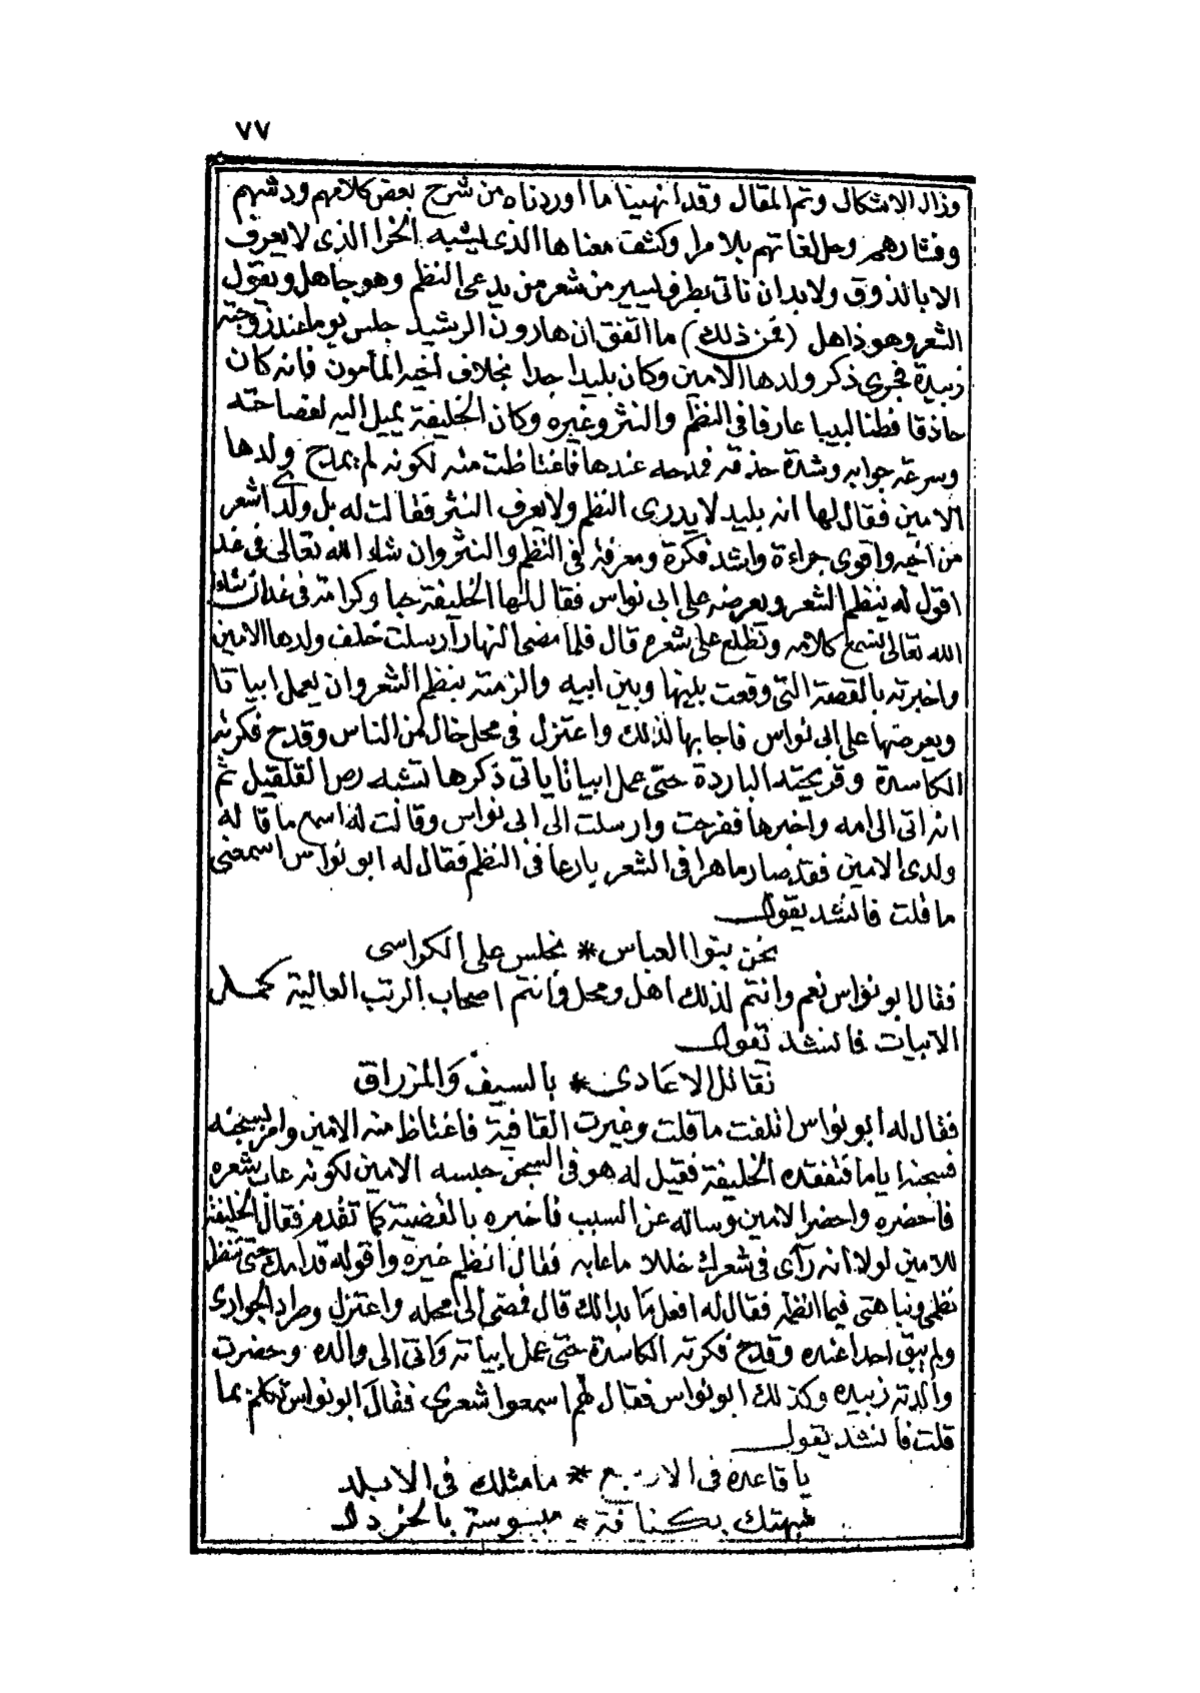 ٧٧
وزال الاشكال وتم المقال وقد انهينا ما اوردناه من شرح بعض كلامهم ودشهم
وفشارهم وحل لغاتهم بلا مرا وكشف معناها الذى يشبه الخرا الذى لا يعرف
الا بالذوق ولا بد ان ناتى بطرف يسير من شعر من يدعى النظم وهو جاهل ويقول
الشعر وهو ذاهل (فمن ذلك) ما اتفق ان هارون الرشيد جلس يوما عند زوجته
زبيدة فجرى ذكر ولدها الامين وكان بليدا جدا بخلاف اخيه المأمون فانه كان
حاذقا فطنا لبيبا عارفا فى النظم والنثر وغيره وكان الخليفة يميل اليه لفصاحته
وسرعة جوابه وشدة حذقه فمدحه عندها فاغتاظت منه لكونه لم يمدح ولدها
الامين فقال لها انه بليد لا يدرى النظم ولا يعرف النثر فقالت له بل ولدى اشعر
من اخيه واقوى جراءة واشد فكرة ومعرفة فى النظم والنثر وان شاء الله تعالى فى غد
اقول له ينظم الشعر ويعرضه على ابى نواس فقال لها الخليفة حبا وكرامة فى غد ان شاء
الله تعالى نسمع كلامه ونطلع على شعره قال فلما مضى النهار ارسلت خلف ولدها الامين
واخبرته بالقصة التى وقعت بينها وبين ابيه والزمته بنظم الشعر وان يعمل ابياتا
ويعرضها على ابى نواس فاجابها لذلك واعتزل فى محل خال من الناس وقدح فكرته
الكاسدة وقريحته الباردة حتى عمل ابياتا ياتى ذكرها تشبه رص القلقيل ثم
انه اتى الى امه واخبرها ففرحت وارسلت الى ابى نواس وقالت له اسمع ما قاله
ولدى الامين فقد صار ماهرا فى الشعر بارعا فى النظم فقال له ابو نواس اسمعنى
ما قلت فانشد يقول
نحن بنوا العباس * نجلس على الكراسى
فقال ابو نواس نعم وانتم لذلك اهل ومحل وانتم اصحاب الرتب العالية كمل
الابيات فانشد يقول
نقاتل الاعادى * بالسيف والمزراق
فقال له ابو نواس اتلفت ما قلت وغيرت القافية فاغتاظ منه الامين وامر بسجنه
فسجنه اياما فتفقده الخليفة فقيل له هو فى السجن حبسه الامين لكونه عاب شعره
فاحضره واحضر الامين وساله عن السبب فاخبره بالقضية كما تقدم فقال الخليفة
للامين لولا انه رآى فى شعرك خللا ما عابه فقال انظم غيره واقوله قدامك حتى تنظر
نظمى ونباهتى فيما انظمه فقال له افعل ما بدالك قال فمضى الى محله واعتزل وطرد الجوارى
ولم يبق احدا عنده وقدح فكرته الكاسدة حتى عمل ابياته واتى الى والده وحضرت
والدته زبيده وكذلك ابو نواس فقال لهم اسمعوا شعرى فقال ابو نواس تكلم بما
قلت فانشد يقول
يا قاعدة فى الاربع * ما مثلك فى الابلد
شبهتك بكنافة * مبسوسة بالخردل